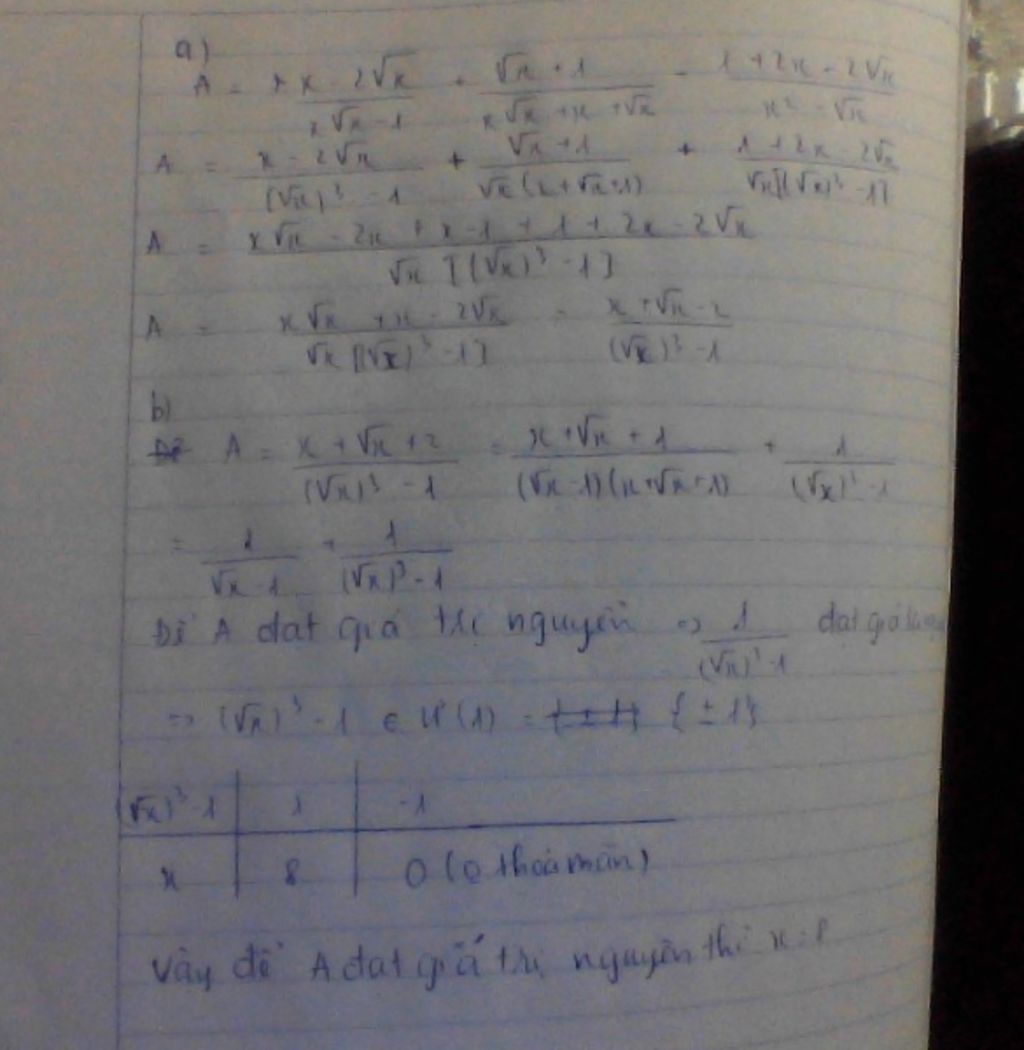 a)
A = x - 2√x / x√x - 1 + √x + 1 / x√x + x + √x - 1 + 2x - 2√x / x² - √x
A = x - 2√x / (√x)³ - 1 + √x + 1 / √x(x + √x + 1) + 1 + 2x - 2√x / √x[(√x)³ - 1]
A = x√x - 2x + x - 1 + 1 + 2x - 2√x / √x [(√x)³ - 1]
A = x√x + x - 2√x / √x [(√x)³ - 1] = x + √x - 2 / (√x)³ - 1
b)
A = x + √x + 2 / (√x)³ - 1 = x + √x + 1 / (√x - 1)(x + √x + 1) + 1 / (√x)³ - 1
= 1 / √x - 1 + 1 / (√x)³ - 1
Để A đạt giá trị nguyên => 1 / (√x)³ - 1 đạt giá
=> (√x)³ - 1 ∈ Ư(1) = {± 1}
(√x)³ - 1 | 1 | -1
x | 8 | 0 (0 thoả mãn)
Vậy để A đạt giá trị nguyên thì x = 8